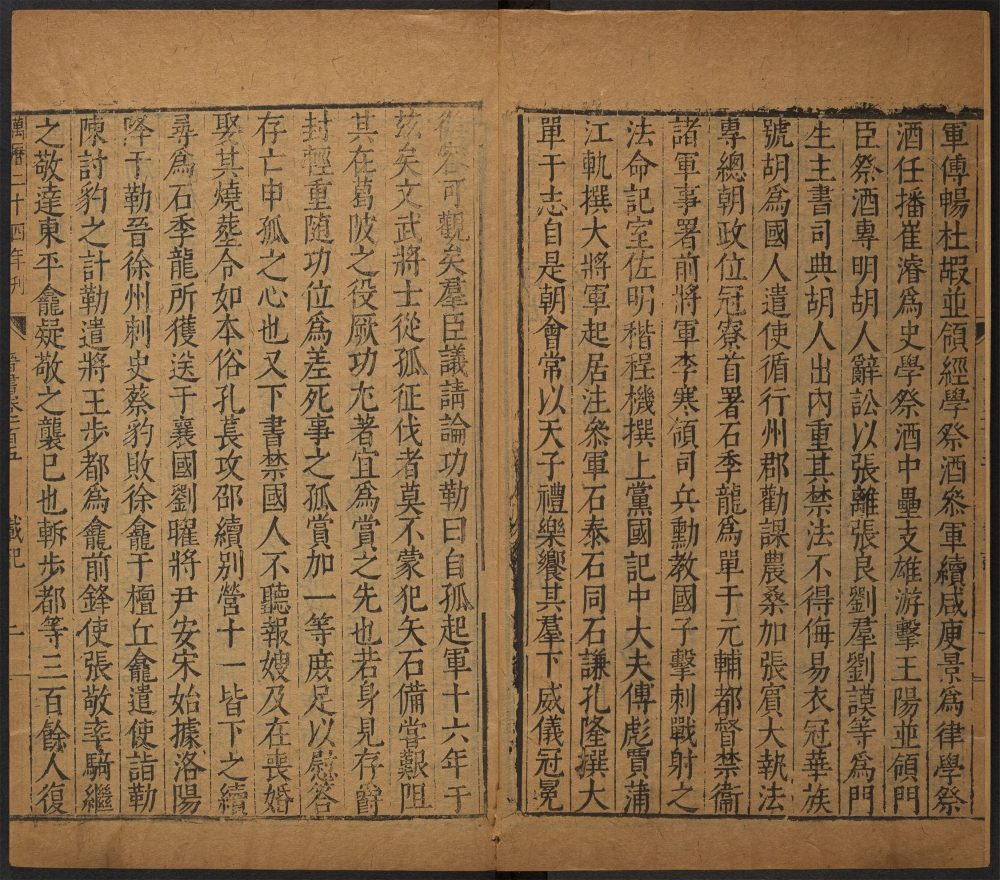 軍傅暢杜嘏並領經學祭酒叅軍續咸庾景爲律學祭
酒任播崔濬爲史學祭酒中壘支雄游擊王陽並領門
臣祭酒專明胡人辭訟以張離張良劉羣劉謨等爲門
生主書司典胡人出內重其禁法不得侮易衣冠華族
號胡爲國人遣使循行州郡勸課農桑加張賓大執法
專總朝政位冠寮首署石季龍爲單于元輔都督禁衞
諸軍事署前將軍李寒領司兵勳教國子擊刺戰射之
法命記室佐明楷程機撰上黨國記中大夫傅彪賈蒲
江軌撰大將軍起居注叅軍石泰石同石謙孔隆撰大
單于志自是朝會常以天子禮樂饗其羣下威儀冠冕
從容可觀矣羣臣議請論功勒曰自孤起軍十六年于
玆矣文武將士從孤征伐者莫不蒙犯矢石備嘗艱阻
其在葛陂之役厥功尤著宜爲賞之先也若身見存爵
封輕重隨功位爲差死事之孤賞加一等庶足以慰答
存亡申孤之心也又下書禁國人不聽報嫂及在喪婚
娶其燒塟令如本俗孔萇攻邵續別營十一皆下之續
尋爲石季龍所獲送于襄國劉曜將尹安宋始據洛陽
降于勒晉徐州刺史蔡豹敗徐龕于檀丘龕遣使詣勒
陳討豹之計勒遣將王步都爲龕前鋒使張敬率騎繼
之敬達東平龕疑敬之襲已也斬步都等三百餘人復
萬曆二十四年刊 晉書卷一百五 載記 二